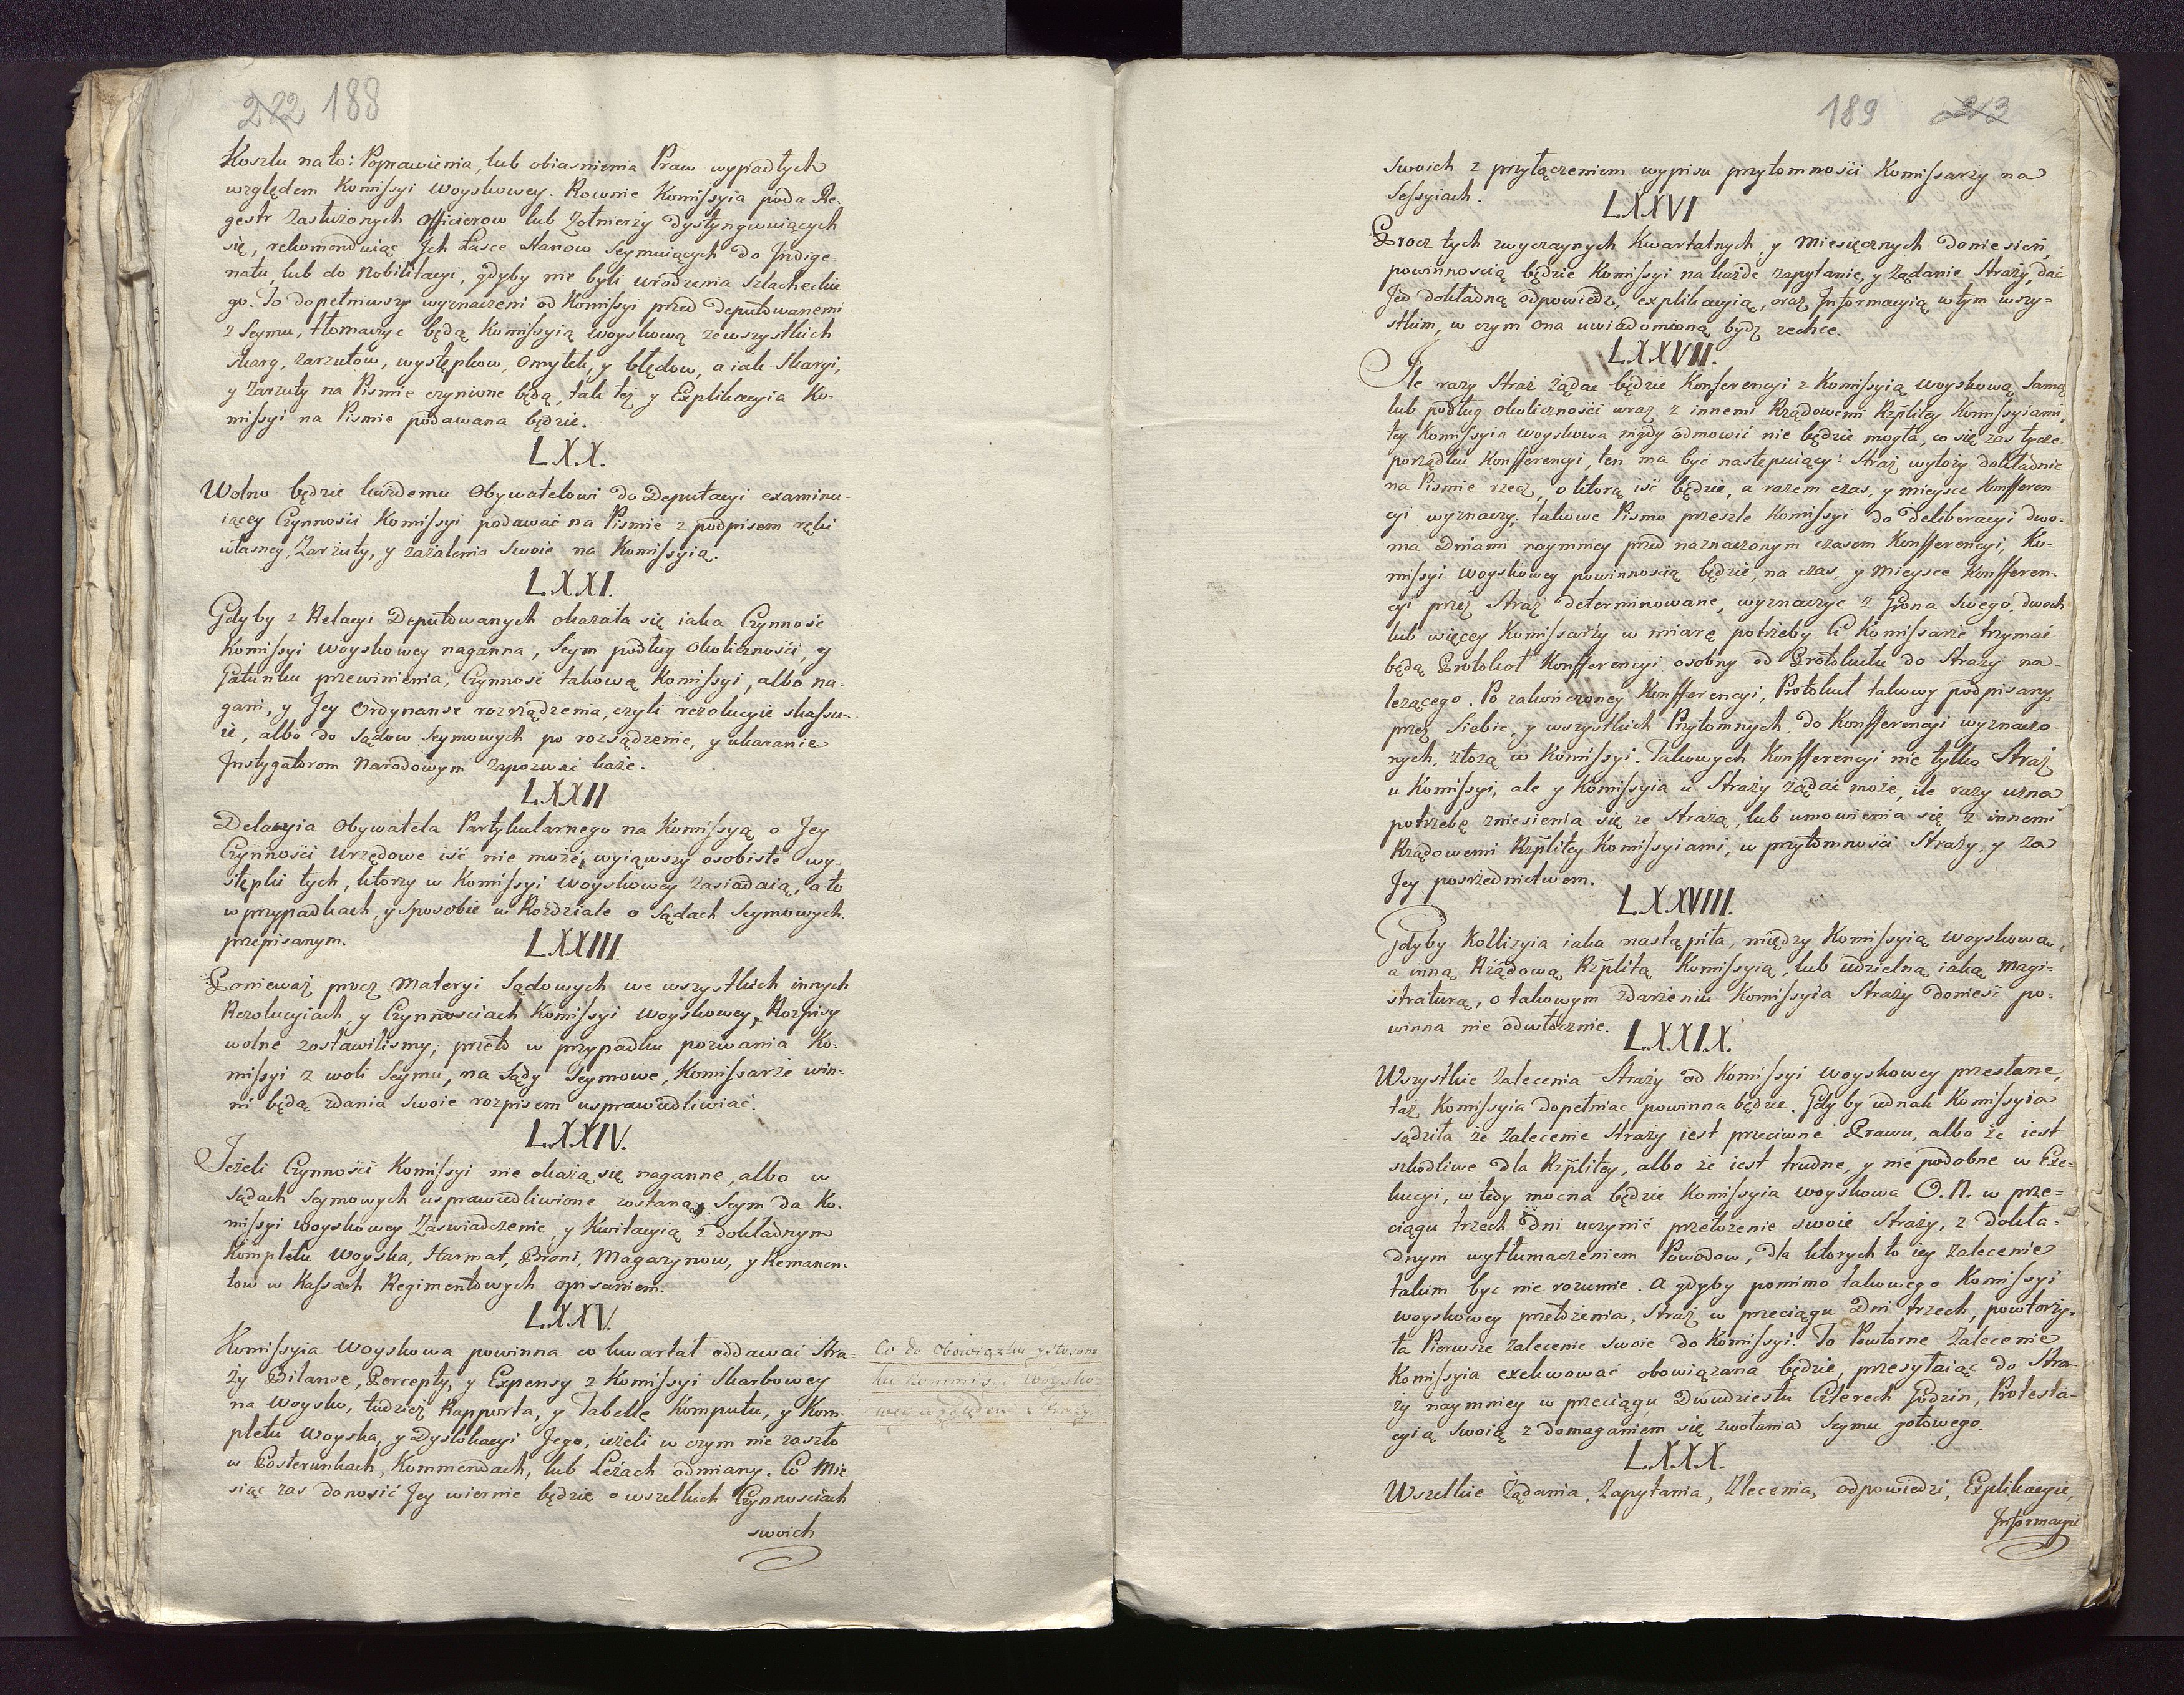 222 188
Kosztu na to: Poprawienia, lub obiasnienia Praw wypadłych
względem Komissyi Woyskowey. Rownie Komissyia poda Re-
gestr Zasłużonych Officierow lub Zołnierzy dystyngwuiących
się, rekomenduiąc Jch Łasce Stanow Seymuiących do Jndige-
natu, lub do Nobilitacyi, gdyby nie byli urodzenia szlacheckie
go. To dopełniwszy wyznaczeni od Komissyi przed Deputowanemi
z Seymu, tłomaczyc będą Komissyią Woyskową ze wszystkich
skarg, zarzutow, występkow, omyłek, y błędow, a iak Skargi,
y Zarzuty na Pismie czynione będą, tak też y Explikacyia Ko-
missyi na Pismie podawana będzie.
LXX.
Wolno będzie każdemu Obywatelowi do Deputacyi examinu-
iącey Czynności Komissyi podawać na Pismie z podpisem ręki
własney, Zarzuty, y zażalenia swoie na Komissyią.
LXXI.
Gdyby z Relacyi Deputowanych okazała się iaka Czynnośc
Komissyi Woyskowey naganna, Seym podług okoliczności, y
Gatunku przewinienia, Czynność takową Komissyi, albo na-
gani, y Jey Ordynanse rozrządzenia, czyli rezolucyie skassu-
ie, albo do Sądow Seymowych po rozsądzenie, y ukaranie
Jnstygatorom Narodowym Zapozwać każe.
LXXII
Delacyia Obywatela Partykularnego na Komissyą o Jey
Czynności Urzędowe iść nie może, wyiąwszy osobiste wy-
stępki tych, ktorzy w Komissyi Woyskowey zasiadaią, a to
w przypadkach, y sposobie w Rozdziale o Sądach Seymowych
przepisanym.
LXXIII.
Ponieważ procz Materyi Sądowych we wszystkich innych
Rezolucyiach, y Czynnosciach Komissyi Woyskowey, Rozpisy
wolne zostawilismy, przeto w przypadku pozwania Ko-
missyi z woli Seymu, na Sądy Seymowe, Komissarze win-
ni będą zdania swoie rozpisem usprawiedliwiać.
LXXIV.
Jeżeli Czynności Komissyi nie okażą się naganne, albo w
Sądach Seymowych usprawiedliwione zostaną, Seym da Ko-
missyi Woyskowey Zaswiadczenie, y Kwitacyią z dokładnym
Kompletu Woyska, Harmat, Broni, Magazynow, y Remanen-
tow w Kassach Regimentowych opisaniem.
LXXV.
Komissyia Woyskowa powinna co kwartał oddawać Stra-
ży Bilanse, Percepty, y Expensy z Komissyi Skarbowey
na Woysko, tudzież Rapporta, y Tabellę Komputu, y Kom-
pletu Woyska, y Dyslokacyi Jego, ieżeli w czym nie zaszło
w Posterunkach, Kommendach, lub Leżach odmiany. Co Mie
siąc zas donosić Jey wiernie będzie o wszelkich Czynnosciach
swoich
Co do obowiązku y stosun
ku Kommissyi Woysko-
wey względem Straży.
189 213
swoich z przyłączeniem wypisu przytomnosci Komissarzy na
Sessyiach.
LXXVI
Procz tych zwyczaynych Kwartalnych, y Miesięcznych doniesień,
powinnoscią będzie Komissyi na każde zapytanie, y żądanie Straży, dać
Jey dokładną odpowiedz, explikacyią, oraz Jnformacyią w tym wszy-
stkim, w czym ona uwiadomioną bydz zechce.
LXXVII.
Jle razy Straż żądac będzie Konferencyi z Komissyią Woyskową Samą
lub podług okoliczności wraz z innemi Rządowemi Rzplitey Komissyiami,
tey Komissyia Woyskowa nigdy odmowić nie będzie mogła, co się zas tycze
porządku Konfferencyi, ten ma być następuiący: Straż wyłoży dokładnie
na Pismie rzecz, o ktorą iść będzie, a razem czas, y mieysce Konfferen-
cyi wyznaczy. takowe Pismo przeszle Komissyi do Deliberacyi dwo-
ma Dniami naymniey przed naznaczonym czasem Konfferencyi, Ko-
missyi Woyskowey powinnoscią będzie, na czas, y Mieysce Konfferen-
cyi przez Straż determinowane, wyznaczyc z Grona Swego, dwoch
lub więcey Komissarzy w miarę potrzeby. Ci Komissarze trzymać
będą Protokoł Konfferencyi osobny od Protokułu do Straży na-
leżącego. Po zakończoney Konfferencyi, Protokuł takowy podpisany,
przez Siebie, y wszystkich Przytomnych do Konfferencyi wyznaczo
nych, złożą w Komissyi. Takowych Konfferencyi nie tylko Straż
u Komissyi, ale y Komissyia u Straży żądać może, ile razy uzna
potrzebę zniesienia się ze Strażą, lub umowienia się z innemi
Rządowemi Rzplitey Komissyiami, w przytomności Straży, y za
Jey posrzednictwem.
LXXVIII.
Gdyby Kollizyia iaka nastąpiła, między Komissyią Woyskową,
a inną Rządową Rzplitą Komissyią, lub udzielną iaką Magi-
straturą, o takowym zdarzeniu Komissyia Straży doniesć po-
winna nie odwłocznie.
LXXIX.
Wszystkie Zalecenia Straży od Komissyi Woyskowey przesłane,
taż Komissyia dopełniac powinna będzie. Gdyby iednak Komissyia
sądziła że Zalecenie Straży iest przeciwne Prawu, albo że iest
szkodliwe dla Rzplitey, albo że iest trudne, y nie podobne w Exe-
kucyi, w tedy mocna będzie Komissyia Woyskowa O. N. w prze-
ciągu trzech dni uczynić przełożenie swoie Straży, z dokła-
dnym wytłumaczeniem Powodow, dla ktorych to iey Zalecenie
takim byc nie rozumie. A gdyby pomimo takowego Komissyi
Woyskowey przełożenia, Straż w przeciągu Dni trzech, powtorzy-
ła Pierwsze Zalecenie swoie do Komissyi: To Powtorne Zalecenie
Komissyia exekwować obowiązana będzie, przesyłaiąc do Stra-
ży naymniey w przeciągu Dwudziestu Czterech Godzin, Protesta-
cyią Swoię z domaganiem się zwołania Seymu gotowego.
LXXX.
Wszelkie Żądania, Zapytania, Zlecenia, odpowiedzi, Explikacyie,
Jnformacyie